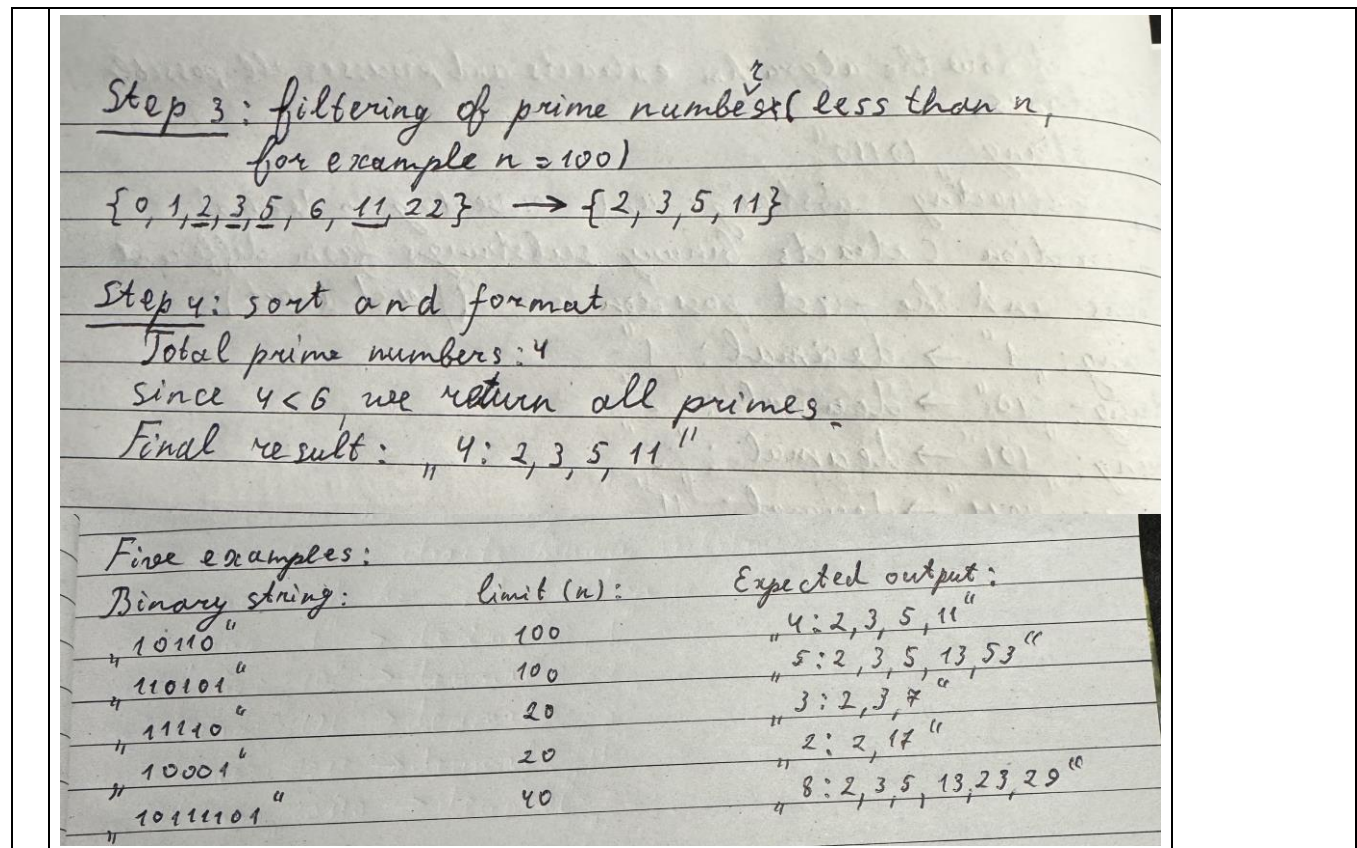 Step 3: filtering of prime numbers (less than n,
for example n = 100)
{0, 1, 2, 3, 5, 6, 11, 22} → {2, 3, 5, 11}
Step 4: sort and format
Total prime numbers: 4
since 4 < 6, we return all primes.
Final result: „4: 2, 3, 5, 11"
Five examples:
Binary string: limit (n): Expected output:
„10110" 100 „4: 2, 3, 5, 11"
„110101" 100 „5: 2, 3, 5, 13, 53"
„11110" 20 „3: 2, 3, 7"
„10001" 20 „2: 2, 17"
„10111101" 40 „8: 2, 3, 5, 13, 23, 29"